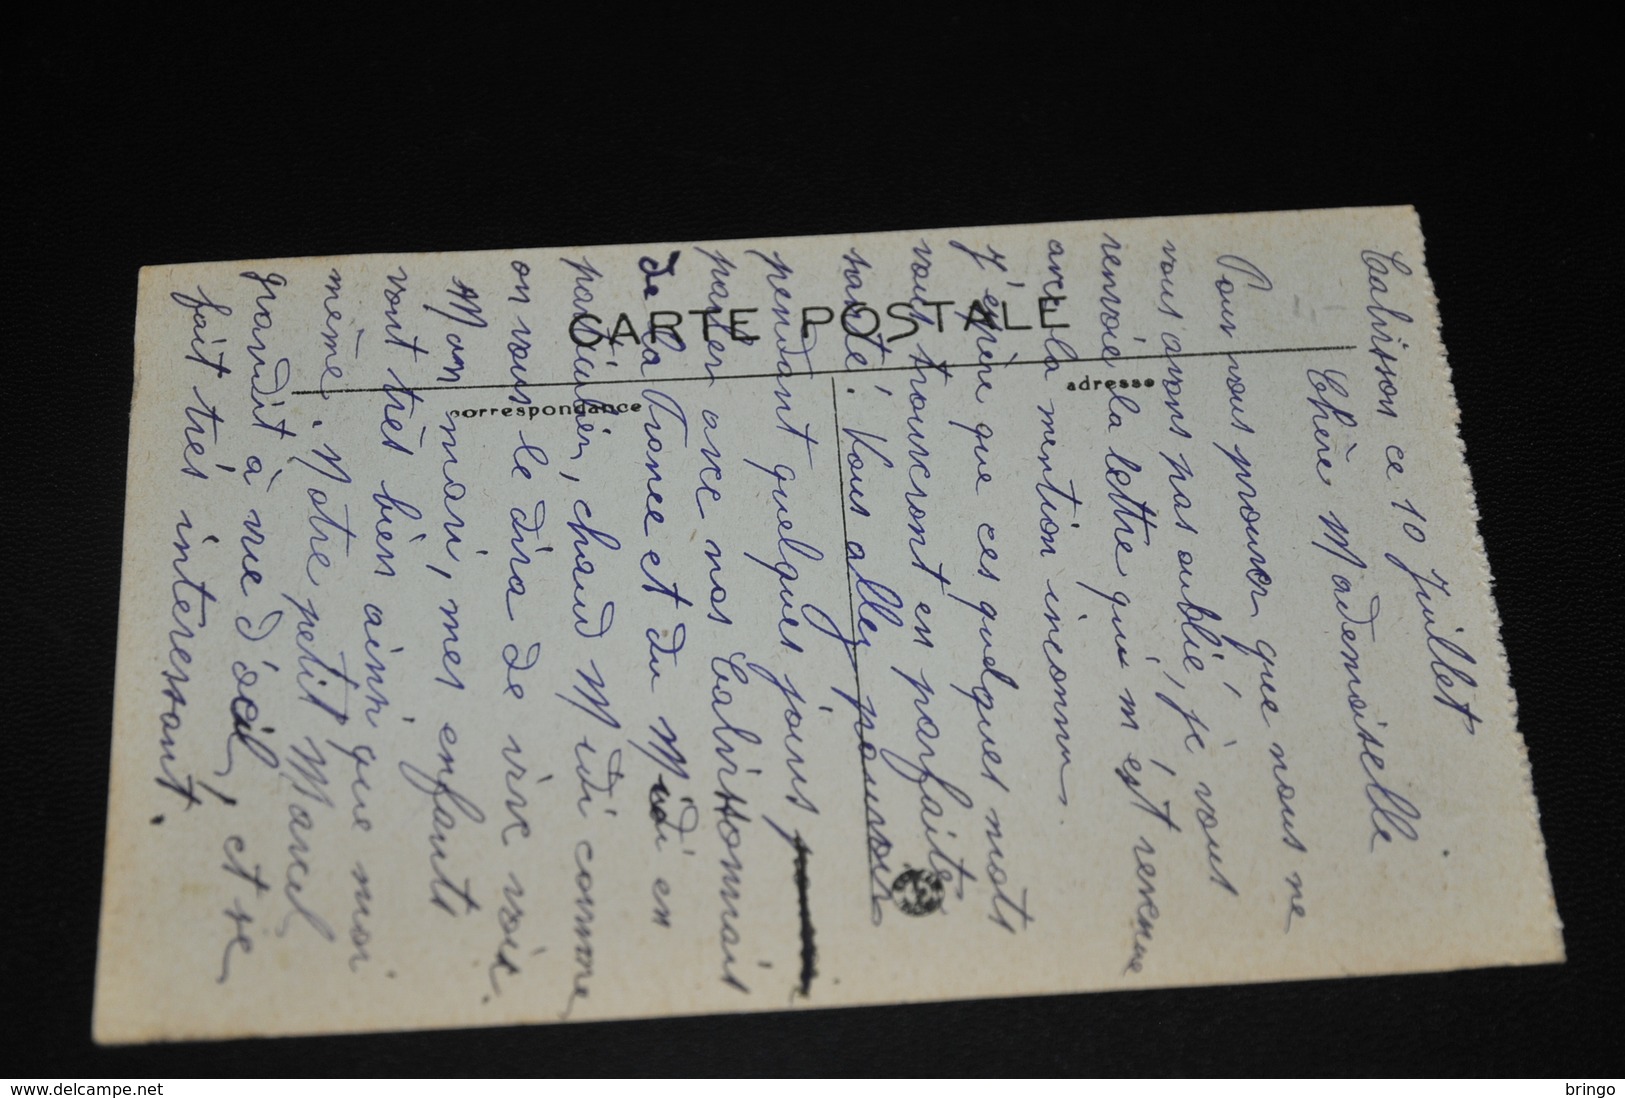 Calvisson ce 10 Juillet
Chère Mademoiselle
Pour vous prouver que nous ne
vous avons pas oublié, je vous
renvoie la lettre qui m'est revenue
avec la mention inconnu.
J'éspère que ces quelques mots
vous trouveront en parfaite
santé. Vous allez pouvoir
pendant quelques jours
parler avec nos Calvissonnais
de la France et du Midi en
particulier, chaud Midi comme
on vous le dira de vive voix.
Mon mari, mes enfants
vont très bien ainsi que moi
même. Notre petit Marcel
grandit à vue d'oeil, et se
fait très interessant.
CARTE POSTALE
correspondance
adresse
delcampe.net
bringo